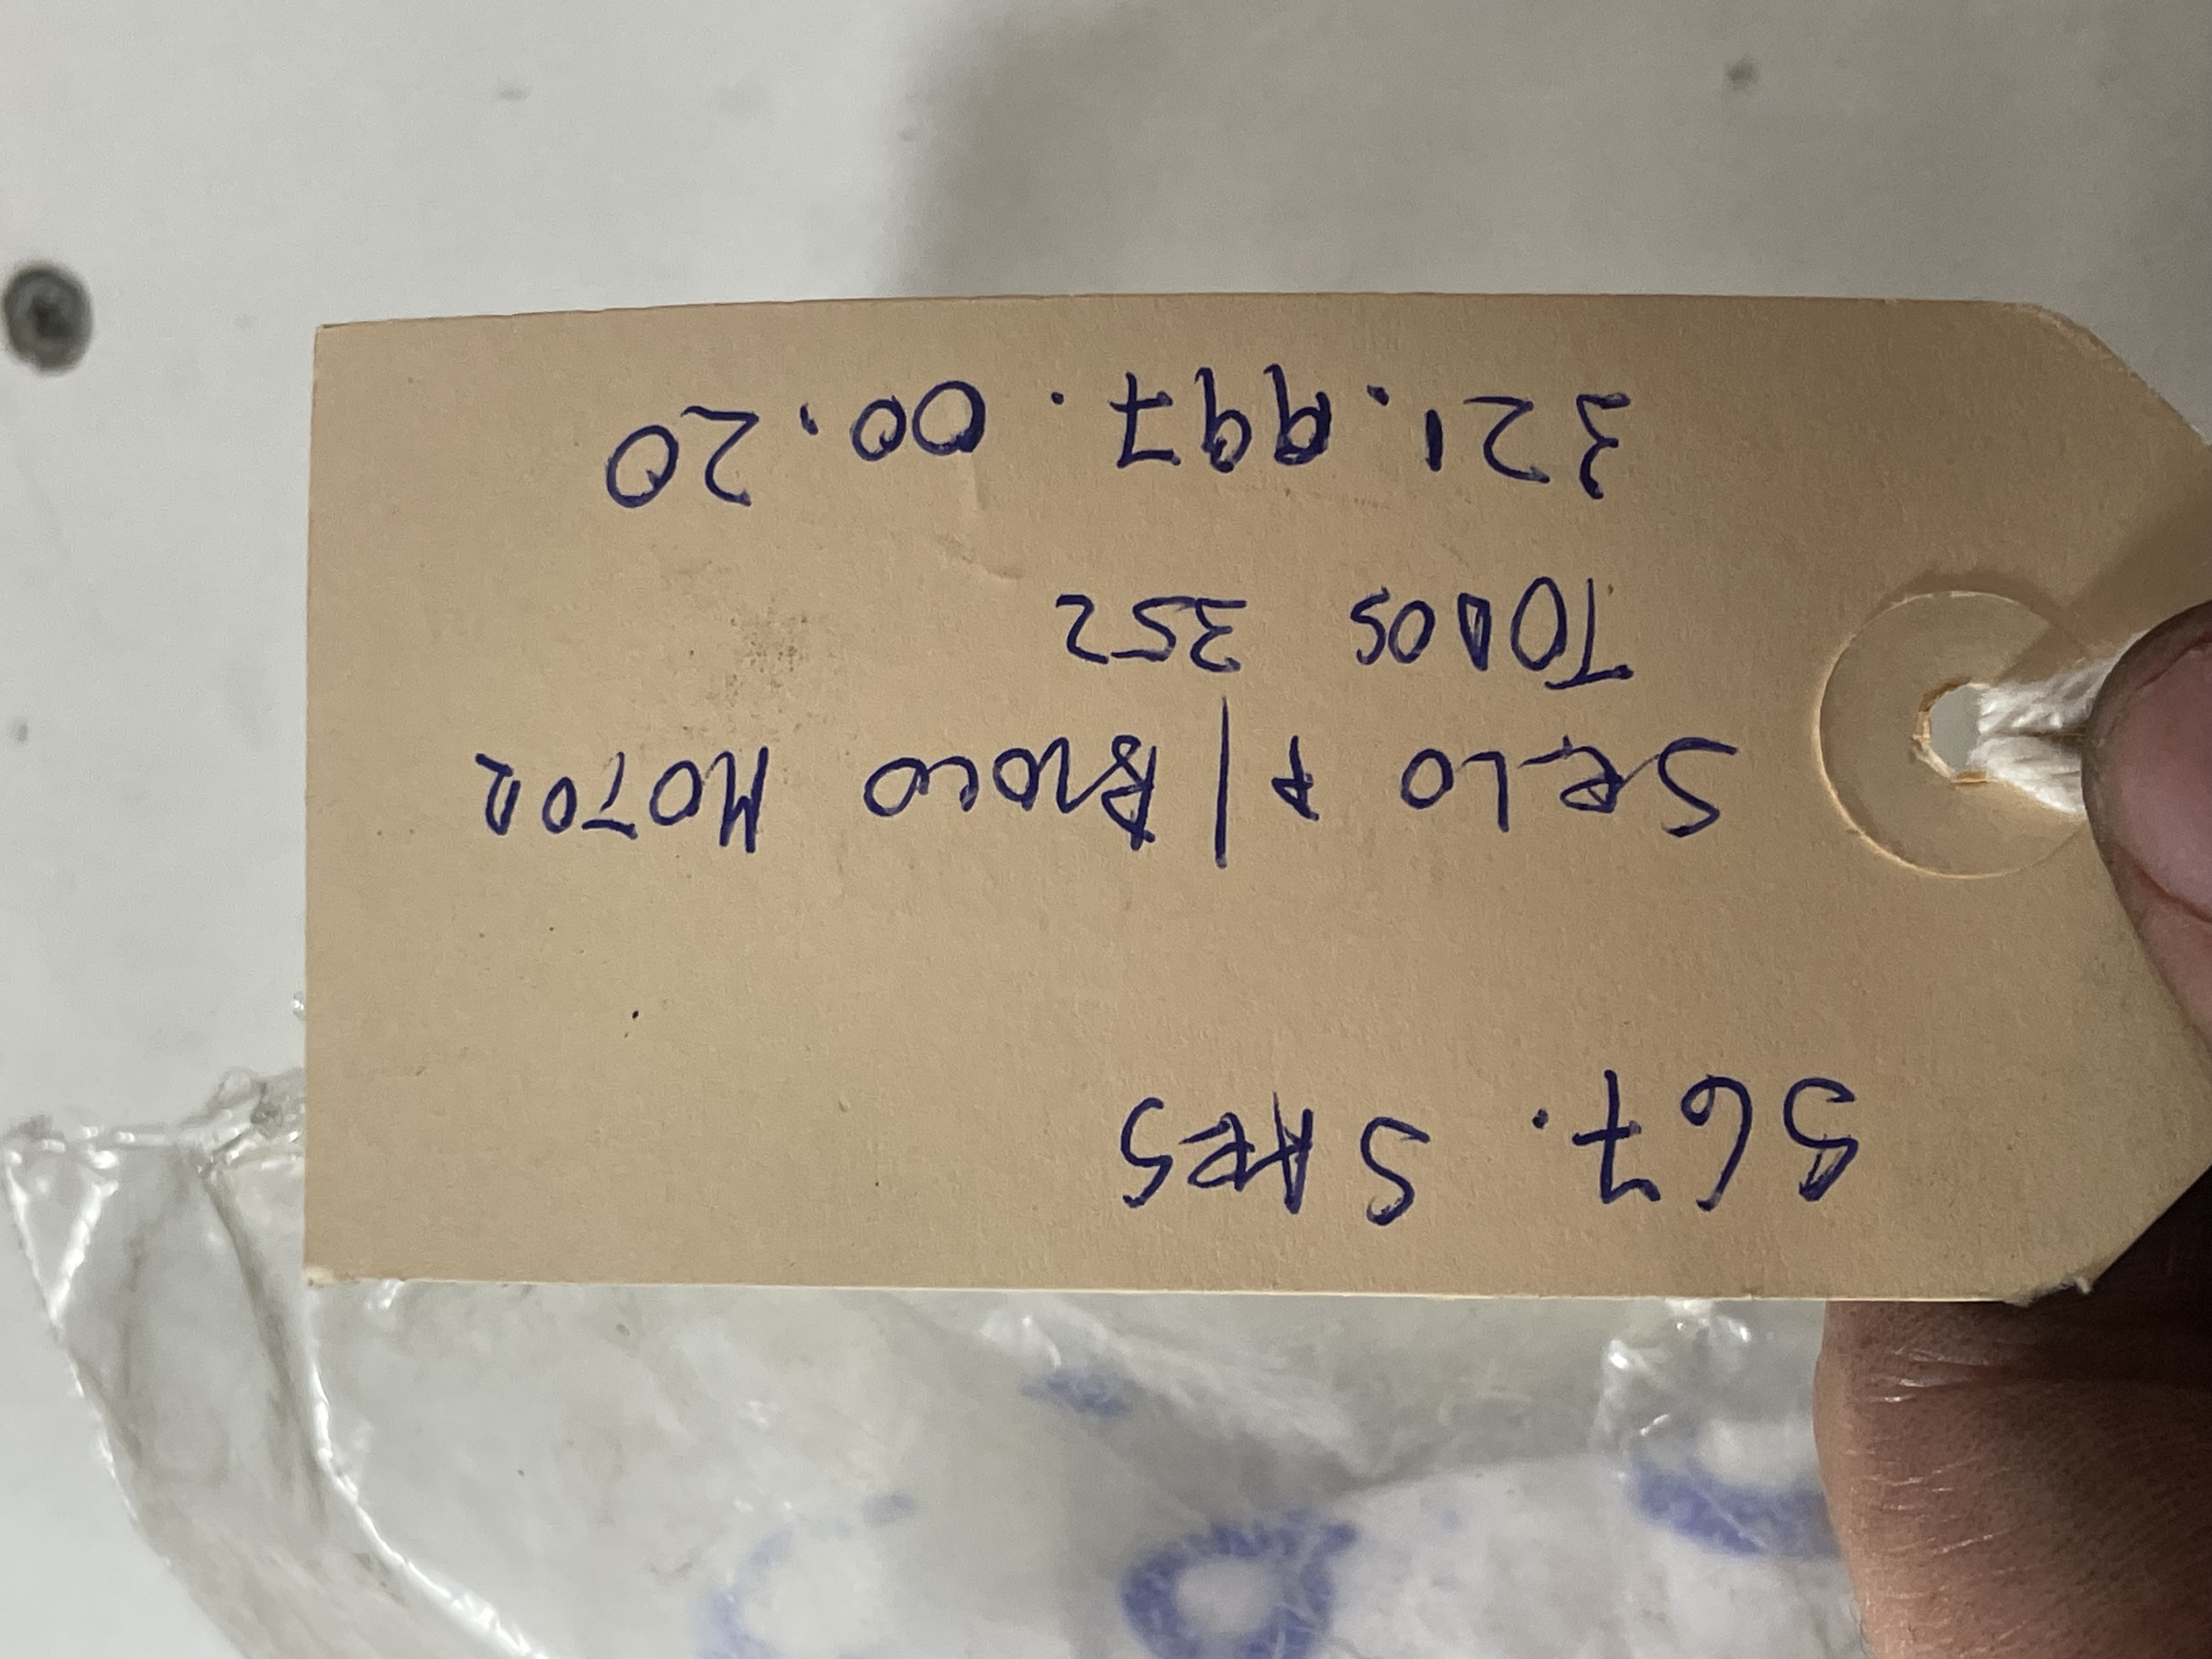 567. SAES
Selo + | BLOCO MOTOR
TODOS 352
321.997.00.20